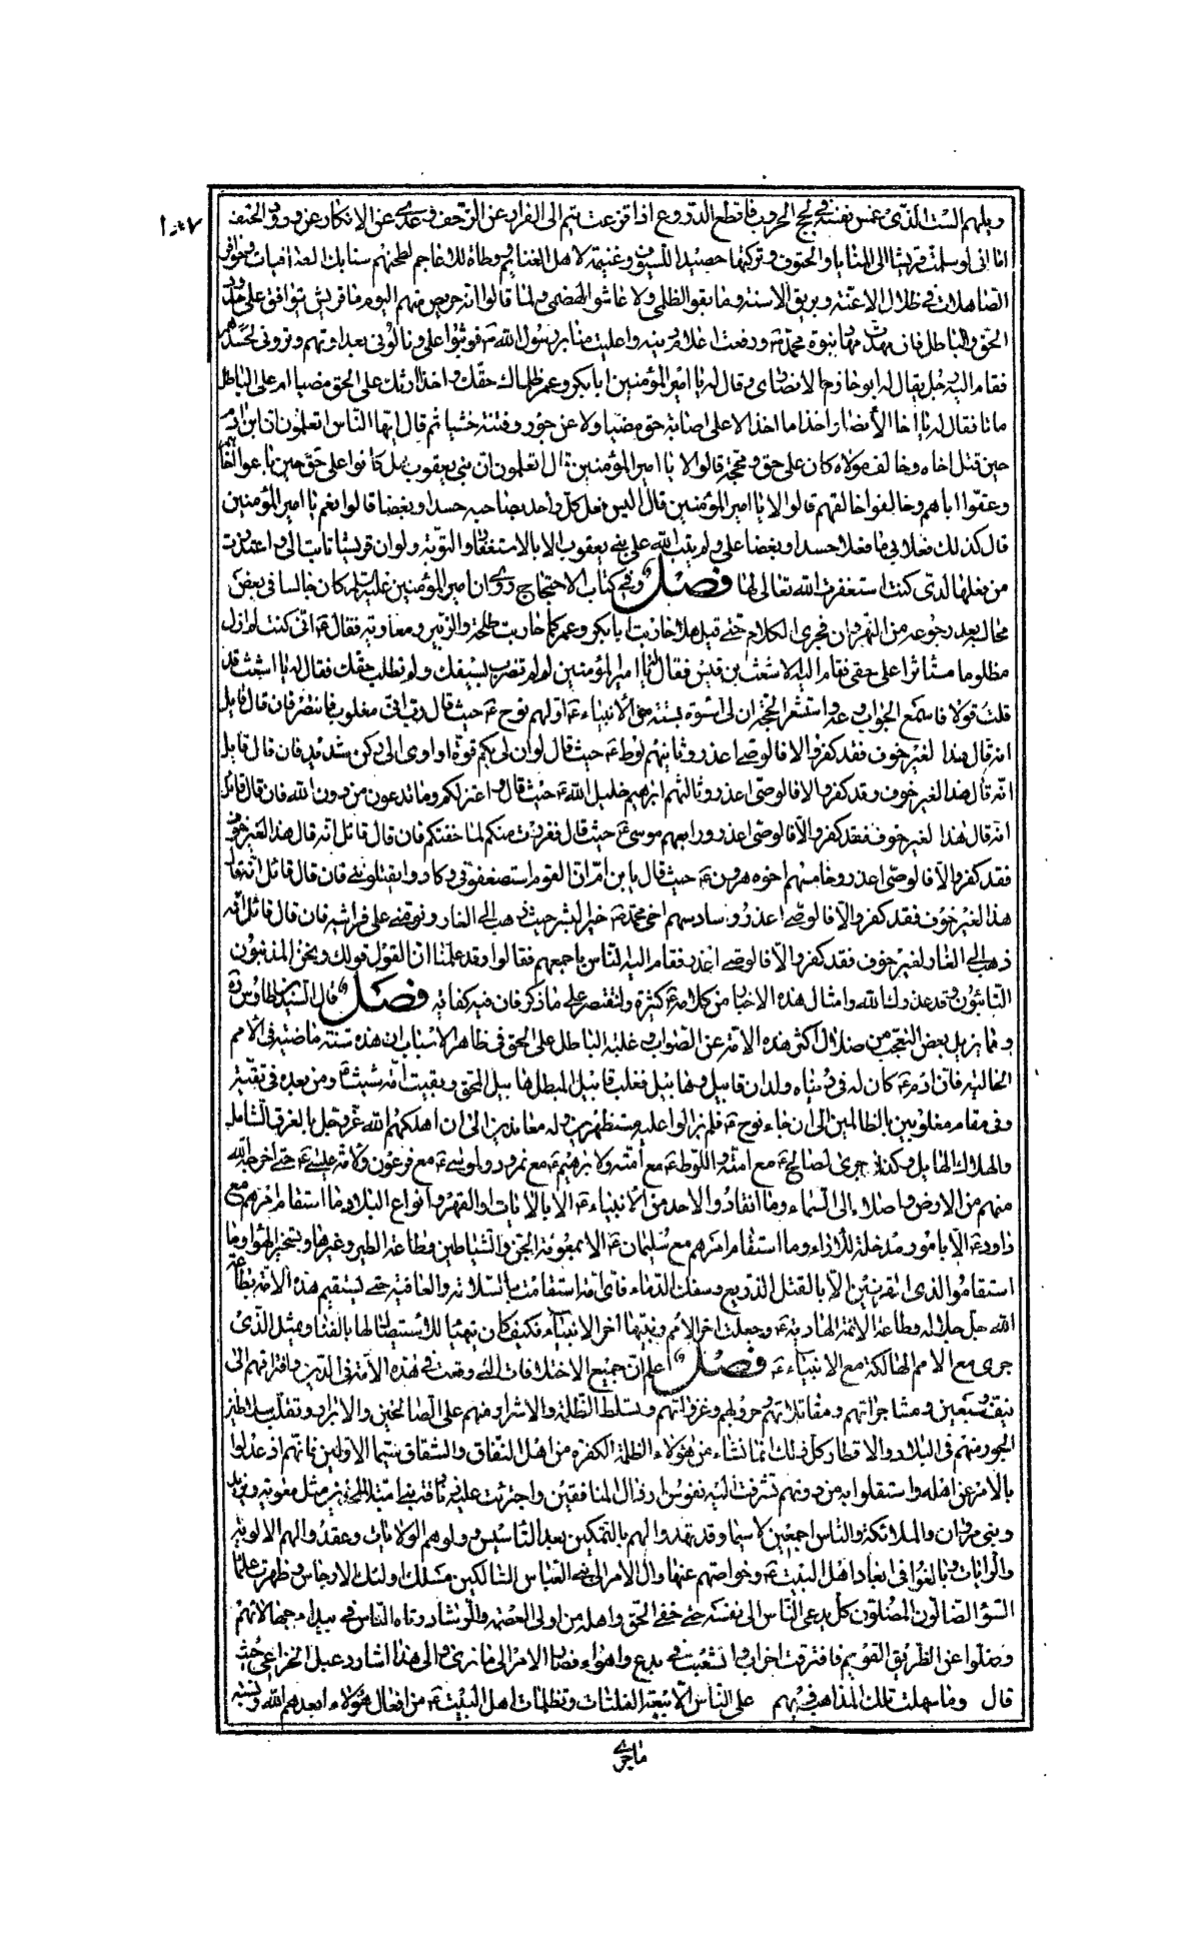 ١٠٧
ويلهم الست الذي غمس نفسه في لجج الحروب فاقطع الدروع اذا فزعت تيم الى الفرار عن الزحف وعدي عن الانكار عن ورود الحتف
اما اني لو سلمت قريشا الى المنايا والحتوف وتركتها حصيدا للسيوف وغنيمة لاهل الغنائم ووطاة للاعاجم لطحنهم سنابك العاديات وحوافر
الصاهلات في ظلال الاعنة وبريق الاسنة وما بقوا لظلمي ولا عاشوا لهضمي ولما قالوا انه حريص متهم اليوم ما قريش نتواقف على حدود
الحق والباطل فان مهدت مهاد نبوة محمد ص ورفعت اعلام دينه واعليت منابر رسول الله ص فوثبوا علي ونالوني بعداوتهم وتروني بحسدهم
فقام اليه رجل يقال له ابو حازم الانصاري وقال له يا امير المؤمنين ابا بكر وعمر ظلماك حقك واخذا ارثك على الحق مضيا ام على الباطل
ماتا فقال له يا اخا الأنصار اخذا ما اخذا لا على اصابة حق مضيا ولا عن جور وفتنة خشيا ثم قال ايها الناس اتعلمون ان ابن ادم
حين قتل اخاه وخالف مولاه كان على حق ومحجة قالوا لا يا امير المؤمنين قال اتعلمون ان بني يعقوب هل كانوا على حق حين باعوا اخاهم
وعقوا اباهم وخالفوا خالقهم قالوا لا يا امير المؤمنين قال اليس فعل كل واحد بصاحبه حسدا وبغضا قالوا نعم يا امير المؤمنين
قال كذلك فعلا بي ما فعلا حسدا وبغضا علي ولم يتب الله على بني يعقوب الا بالاستغفار والتوبة ولو ان قريشا تابت الي واعتذرت
من فعلها لدي كنت استغفرت الله تعالى لها فصل وفي كتاب الاحتجاج روي ان امير المؤمنين عليه السلام كان جالسا في بعض
مجالسه بعد رجوعه من النهروان فجرى الكلام حتى قيل هلا حاربت ابا بكر وعمر كما حاربت طلحة والزبير ومعاوية فقال ع اني كنت لم ازل
مظلوما مستأثرا على حقي فقام اليه الاشعث بن قيس فقال يا امير المؤمنين لم لم تضرب بسيفك ولم تطلب حقك فقال له يا اشعث قد
قلت قولا فاسمع الجواب وعه واستشعر الحجة ان لي اسوة بستة من الانبياء ع اولهم نوح ع حيث قال رب اني مغلوب فانتصر فان قال قائل
انه قال هذا لغير خوف فقد كفر والا فالوصي اعذر وثانيهم لوط ع حيث قال لو ان لي بكم قوة او اوي الى ركن شديد فان قال قائل
انه قال هذا لغير خوف فقد كفر والا فالوصي اعذر وثالثهم ابرهيم خليل الله ع حيث قال واعتزلكم وما تدعون من دون الله فان قال قائل
انه قال هذا لغير خوف فقد كفر والا فالوصي اعذر ورابعهم موسى ع حيث قال ففررت منكم لما خفتكم فان قال قائل انه قال هذا لغير خوف
فقد كفر والا فالوصي اعذر وخامسهم اخوه هرون ع حيث قال يا بن ام ان القوم استضعفوني وكادوا يقتلونني فان قال قائل انه قال
هذا لغير خوف فقد كفر والا فالوصي اعذر وسادسهم اخي محمد ص خير البشر حيث ذهب الى الغار ونومني على فراشه فان قال قائل انه
ذهب الى الغار لغير خوف فقد كفر والا فالوصي اعذر فقام اليه الناس باجمعهم فقالوا وقد علمنا ان القول قولك ونحن المذنبون
التائبون وقد عذرك الله وامثال هذه الاخبار من كلامه ع كثيرة ولنقتصر على ما ذكر فان فيه كفاية فصل قال السيد بن طاوس ره
ومما يزيل بعض التعجب من ضلال اكثر هذه الامة عن الصواب وغلبة الباطل على الحق في ظاهر الاسباب ان هذه سنة ماضية في الأمم
الخالية فان ادم ع كان له في دنياه ولدان قابيل وهابيل فغلب قابيل المبطل هابيل المحق وبقيت امة شيث ع ومن بعده في تقية
وفي مقام مغلوبين بالظالمين الى ان جاء نوح ع فلم يزالوا عليه مستظهرين وله معاندين الى ان اهلكهم الله عز وجل بالغرق الشامل
والهلاك الهايل وكذا جرى لصالح ع مع امته وللوط ع مع امته ولابرهيم ع مع نمرود ولموسى ع مع فرعون ولامة عيسى ع حتى اخرجه الله
منهم من الارض واصلاه الى السماء وما انقادوا لاحد من الانبياء ع الا بالايات او القهر وانواع البلاء وما استقام امرهم مع
داود ع الا بامور مذهلة للاراء وما استقام امرهم مع سليمان ع الا بمعونة الجن والشياطين وطاعة الطير وغيرها وتسخير الهواء وما
استقاموا لذي القرنين الا بالقتل الذريع وسفك الدماء فاي امة استقامت بالسلامة والعافية حتى تستقيم هذه الامة بطاعة
الله جل جلاله وطاعة الائمة الهادية ع وجعلت اخر الامم ونبيها اخر الانبياء فكيف كان تهيئا لك استيصالها بالفناء وبمثل الذي
جرى مع الامم الهالكة مع الانبياء ع فصل اعلم ان جميع الاختلافات التي وقعت في هذه الامة في الدين وافتراقهم الى
نيف وسبعين ومشاجراتهم ومقاتلاتهم وحروبهم وغزواتهم وتسلط الظلمة والاشرار منهم على الصالحين والابرار وتقلب سلاطين
الجور منهم في البلاد والاقطار كل ذلك انما نشاء من هؤلاء الظلمة الكفرة من اهل النفاق والشقاق سيما الاولين فانهم اذ عدلوا
بالامر عن اهله واستقلوا به من دونهم تشرفت اليه نفوس ارذال المنافقين واجترئت عليه زنادقة بني امية الملعونين مثل معوية ويزيد
وبني مروان والملائكة والناس اجمعين لا سيما وقد مهدوا لهم بالتمكين بعد التأسيس وولوهم الولايات وعقدوا لهم الالوية
والرايات وبالغوا في ابعاد اهل البيت ع وخواصهم عنها وال الامر الى بني العباس السالكين مسلك اولئك الارجاس وظهرت علماء
السوء الضالون المضلون كل يدعي الناس الى نفسه حتى خفي الحق واهله من اولي العصمة والرشاد وتاه الناس في بيداء جهالاتهم
وضلوا عن الطريق القويم فافترقت احزابا وانشعبت في بدع واهواء فصار الامر الى ما نرى والى هذا اشار دعبل الخزاعي حيث
قال وما سهلت تلك المذاهب فيهم على الناس الا بيعة الفلتات وتظلمات اهل البيت ع من افعال هؤلاء ابعدهم الله ونسبة
ماجرى